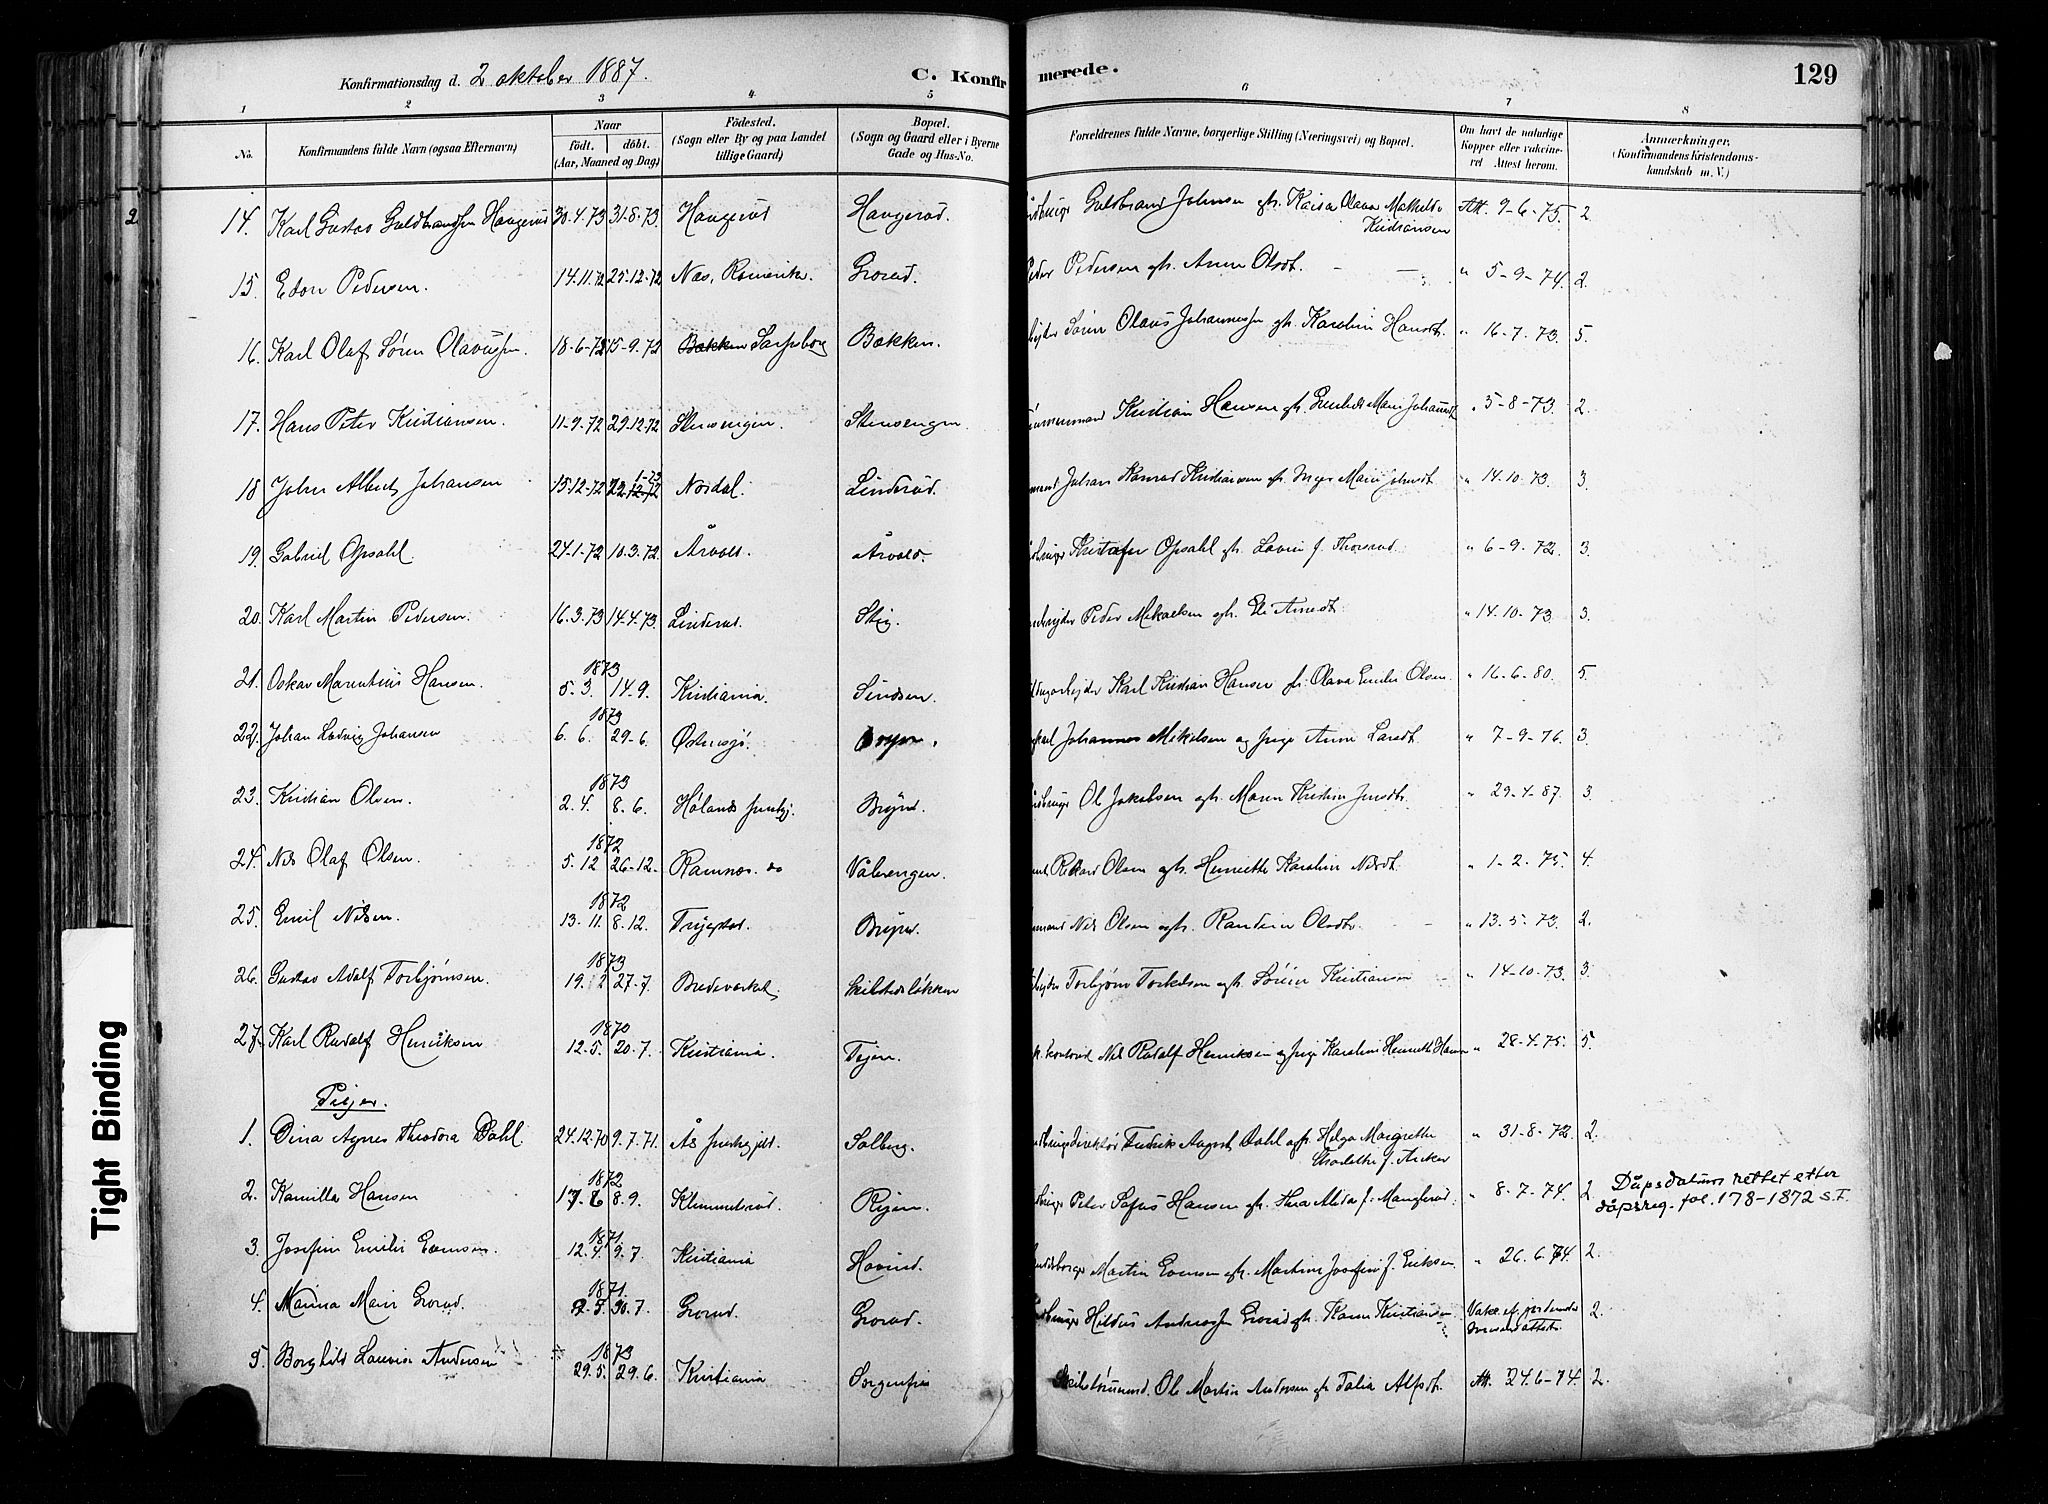 Konfirmationsdag d. 2 oktober 1887.
C. Konfirmerede.
129
1 2 3 4 5 6 7 8
No.
Konfirmandens fulde Navn (ogsaa Efternavn)
Naar
födt. döbt.
(Aar, Maaned og Dag)
Födested.
(Sogn eller By og paa Landet
tillige Gaard)
Bopæl.
(Sogn og Gaard eller i Byerne
Gade og Hus-No.
Forældrenes fulde Navne, borgerlige Stilling (Næringsvei) og Bopæl.
Om havt de naturlige
Kopper eller vakcine-
ret Attest herom.
Anmærkninger.
(Konfirmandens Kristendoms-
kundskab m. V.)
2
14. Karl Gustav Guldbrandsen Haugerud 30-4-73 31-8-73. Haugerud Haugerud. Guldbrand Johnsen gh. Kaisa Olava Mathilde Att. 9-6-75. 2.
Kristiansen
15. Edon Pedersen. 14.11.72 25-12-72 Næs, Romerike. Grorud. Peder Pedersen gh. Anne Olsdt. " 5-9-74. 2.
16. Karl Olaf Søren Olavussen. 18-6-72 15-9.72 Bækken Sarpsborg Bækken. Søren Olaus Johannessen gh. Karoline Hansdt. " 16-7-73. 5.
17. Hans Peter Kristiansen. 11-9-72 29-12-72 Stensengen. Stensengen. Kristian Hansen gh. Marie Johannsdt " 5-8-73. 2.
1-73
18 Johan Albert Johansen 15-12-72 22-12-72 Nordal. Linderud. Johan Konrad Kristiansen gh. Inger Marie Johnsdt. " 14-10-73. 3.
19. Gabriel Opsahl. 24-1-72 10.3.72. Årvold. Årvold. Kristofer Opsahl gh. Lovise f. Thorsrud " 6-9-72. 3.
20. Karl Martin Pedersen. 16.3.73 14.4.73. Linderud. Stig. Peder Mikaelsen gh. Eli Arnesdt. " 14.10-73. 3.
1873
21. Oskar Marentius Hansen. 5.3. 14.9. Kristiania. Sindsen. Karl Kristian Hansen gh. Olava Emilie Olsen. " 16-6-80. 5.
1873
22. Johan Ludvig Johansen 6.6. 29-6. Østensjø. Bryn. Johannes Mikelsen og pige Anne Larsdt " 7-9-76. 3.
1873
23. Kristian Olsen. 2.4. 8.6. Hølands prestgj. Bryn. Ol Jakobsen gh. Maren Kristine Jensdt. " 29-4-87. 3.
1872
24. Nils Olaf Olsen. 5.12 26-12- Ramnæs. do Vålerengen. Rikard Olsen gh. Henriette Karoline Nilsdt. " 1-2-75. 4.
1872
25. Emil Nilsen. 13.11. 8.12. Trygstad. Bryn. Nils Olsen gh. Randine Olsdt. " 13.5.73. 2.
1873
26. Gustav Adolf Torbjørnsen. 19.2 27-7. Bredeverket. Skilstedsløkken Torbjørn Torkelsen gh. Sørine Kristiansen " 14-10-73. 3.
1870
27. Karl Rudolf Henriksen 12.5. 20.7. Kristiania. Tejen. Nils Rudolf Henriksen og pige Karoline Henriette Hansen " 28-4-75. 5.
Piger.
1. Dina Agnes Theodora Dahl. 24.12.70 9.7.71. Ås prestegjeld. Solberg. Fredrik August Dahl gh. Helga Margrethe " 31-8-72. 2.
Charlotte f. Anker
1872
2. Kamilla Hansen 17-6 8.9. Klemmetsrud. Ryen. Peter Sofus Hansen gh. Thea Alida f. Manglerud. " 8-7-74. 2. Dåpsdatum rettet etter
dåpsreg. fol. 178-1872 S.F.
1871
3. Josefine Emilie Evensen. 12.4. 9.7. Kristiania Hovind. Martin Evensen gh. Martine Josefine f. Eriksen. " 26.6.74. 2.
1871.
4. Marie Grorud. 2.5. 30.7. Grorud. Grorud. Andreassen Grorud gh. Karen Kristiansen Vakc. ef. jordemoder 2.
attest.
1873
5. Borghild Lovise Andersen 29.5. 29.6. Kristiania Sorgenfri Ole Martin Andersen gh. Talia Alfsdt. Att. 24.6-74. 2.
Tight Binding